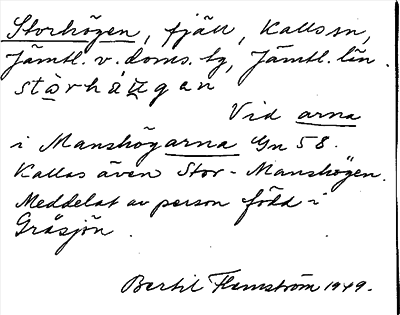 Storhögen, fjäll, Kallssn,
Jämtl. v. doms. tg, Jämtl. län.
stòrháꭒgan
Vid arna
i Manshögarna Gn 58.
Kallas även Stor-Manshögen.
Meddelat av person född i
Gråsjön.
Bertil Flemström 1949.